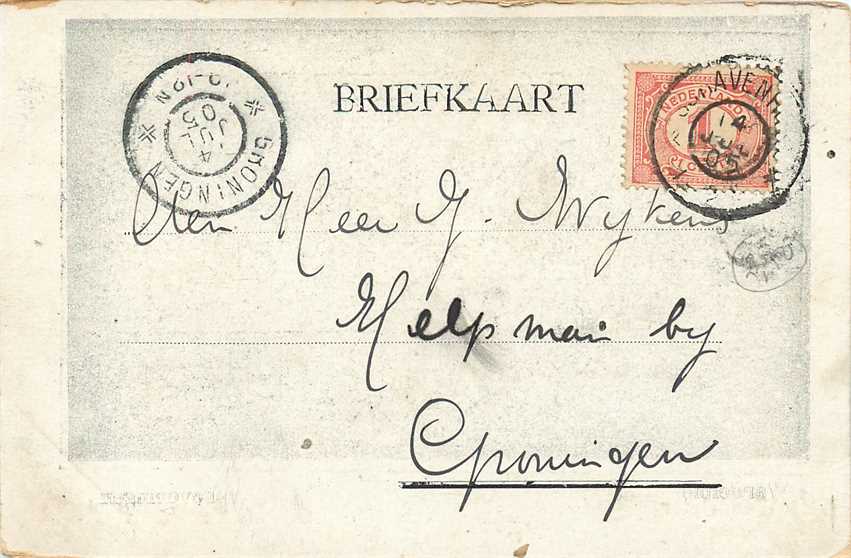 BRIEFKAART
GRONINGEN
4 JUL 05
NEDERLAND
1
14 JUL 05
Den Heer J. Wykens
Helpman by
Groningen